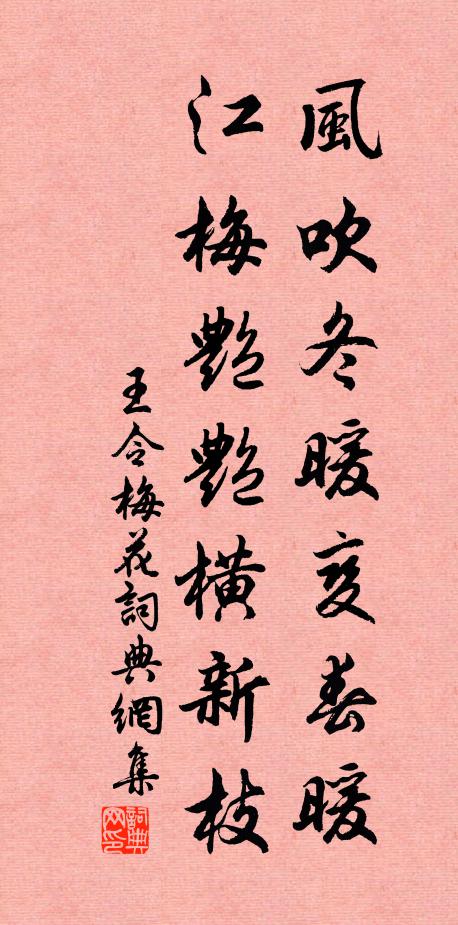 風吹冬暖變春暖
江梅艷艷橫新枝
王令梅花詞典網集
詞典网印